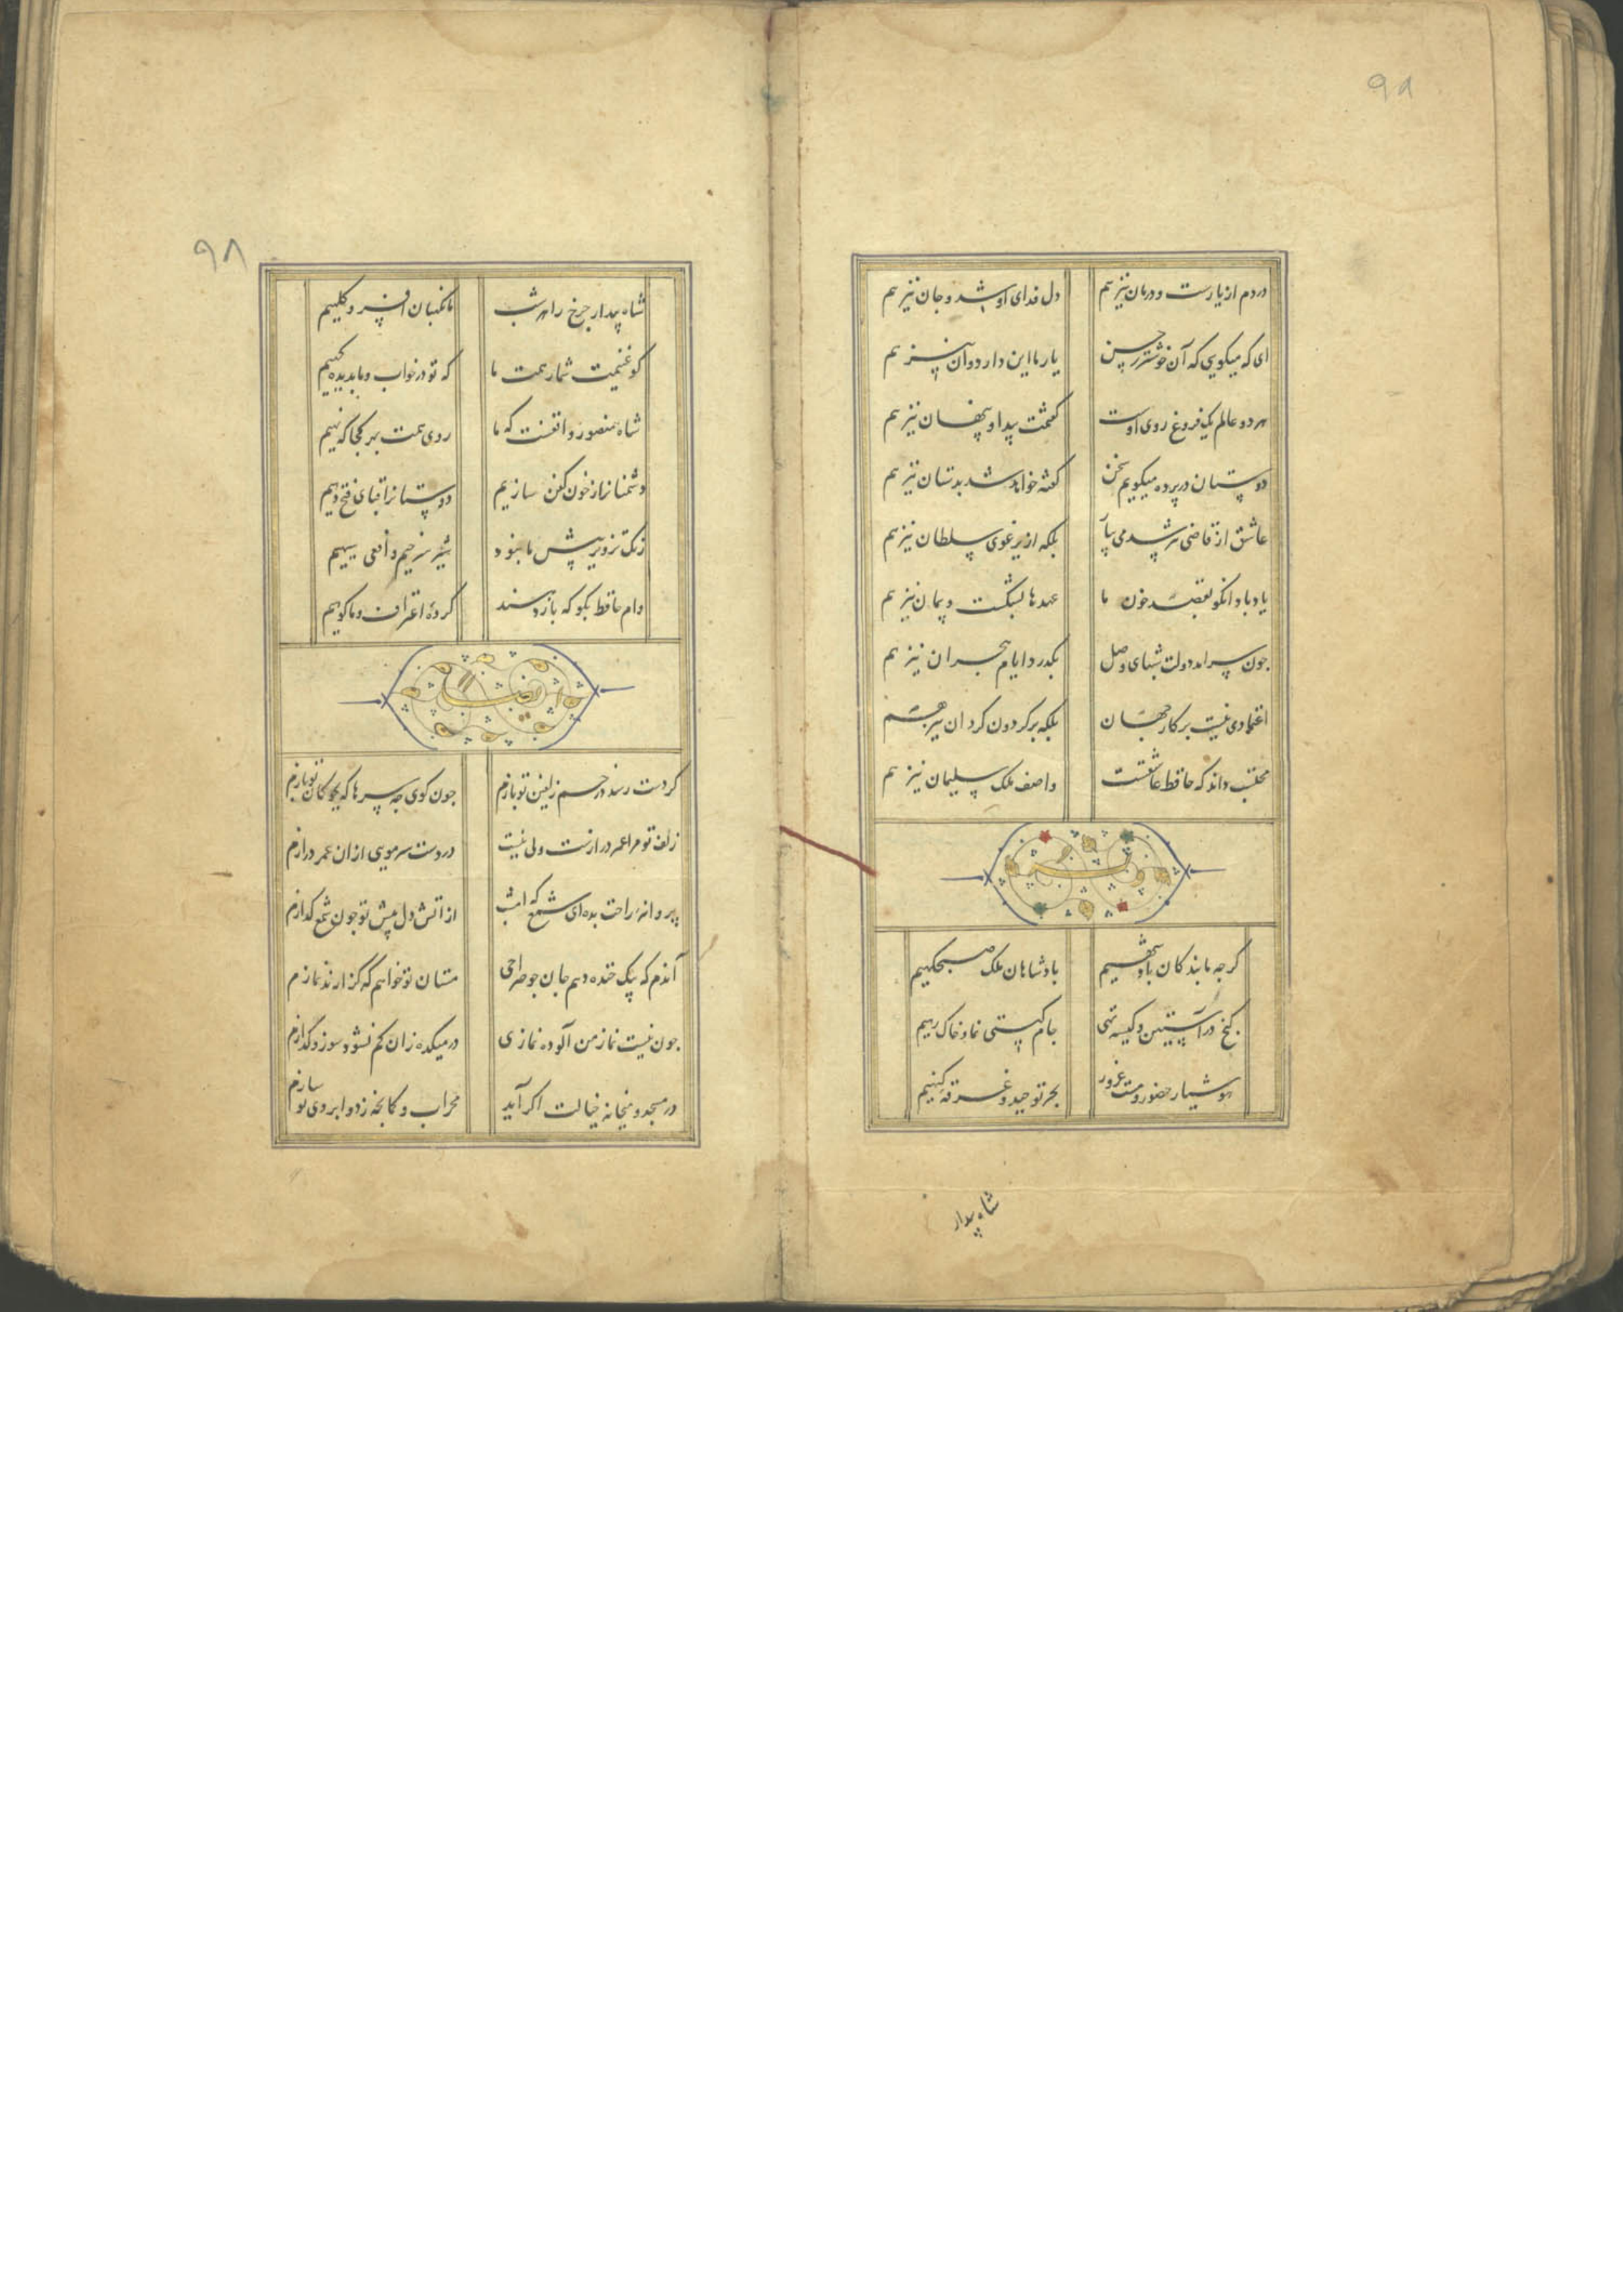 ۹۸
دردم از یارست و درمان نیز هم دل فدای او شد و جان نیز هم
ای که میکویی که آن خوشتر ز حسن یار ما این دارد و آن نیز هم
هر دو عالم یک فروغ روی اوست کفتمت پیدا و پنهان نیز هم
دوستان در پرده میکویم سخن کفته خواهد شد بدستان نیز هم
عاشق از قاضی نترسد می بیار بلکه از یرغوی سلطان نیز هم
یاد باد انکو بقصد خون ما عهدها بشکست و پیمان نیز هم
چون سر امد دولت شبهای وصل بکذرد ایام هجران نیز هم
اعتمادی نیست بر کار جهان بلکه بر کردون کردان نیز هم
محتسب داند که حافظ عاشقست واصف ملک سلیمان نیز هم
کرچه ما بندکان پادشهیم پادشاهان ملک صبحکهیم
کنج در آستین و کیسه تهی جام کیتی نما و خاک رهیم
هوشیار حضور و مست غرور بحر توحید و غرقه کنهیم
شاه بیدار
۹۸
شاه بیدار چرخ را هر شب ما نکهبان افسر و کلهیم
کو غنیمت شمار همت ما که تو در خواب و ما بدیده کهیم
شاه منصور واقفست که ما روی همت بهر کجا که نهیم
دشمنانرا ز خون کفن سازیم دوستانرا قبای فتح دهیم
رنک تزویر پیش ما نبود شیر سرخیم و افعی سیهیم
وام حافظ بکو که باز دهند کرده اعتراف و ما کوهیم
ایضا له
کر دست رسد در خم زلفین تو بازم چون کوی چه سرها که بچوکان تو بازم
زلف تو مرا عمر درازست ولی نیست در دست سر مویی از ان عمر درازم
پروانه راحت بده ای شمع که امشب از اتش دل پیش تو چون شمع کدازم
آندم که بیک خنده دهم جان چو صراحی مستان تو خواهم که کزارند نمازم
چون نیست نماز من آلوده نمازی در میکده زان کم نشود سوز و کدازم
در مسجد و میخانه خیالت اکر آید محراب و کمانچه ز دو ابروی تو سازم